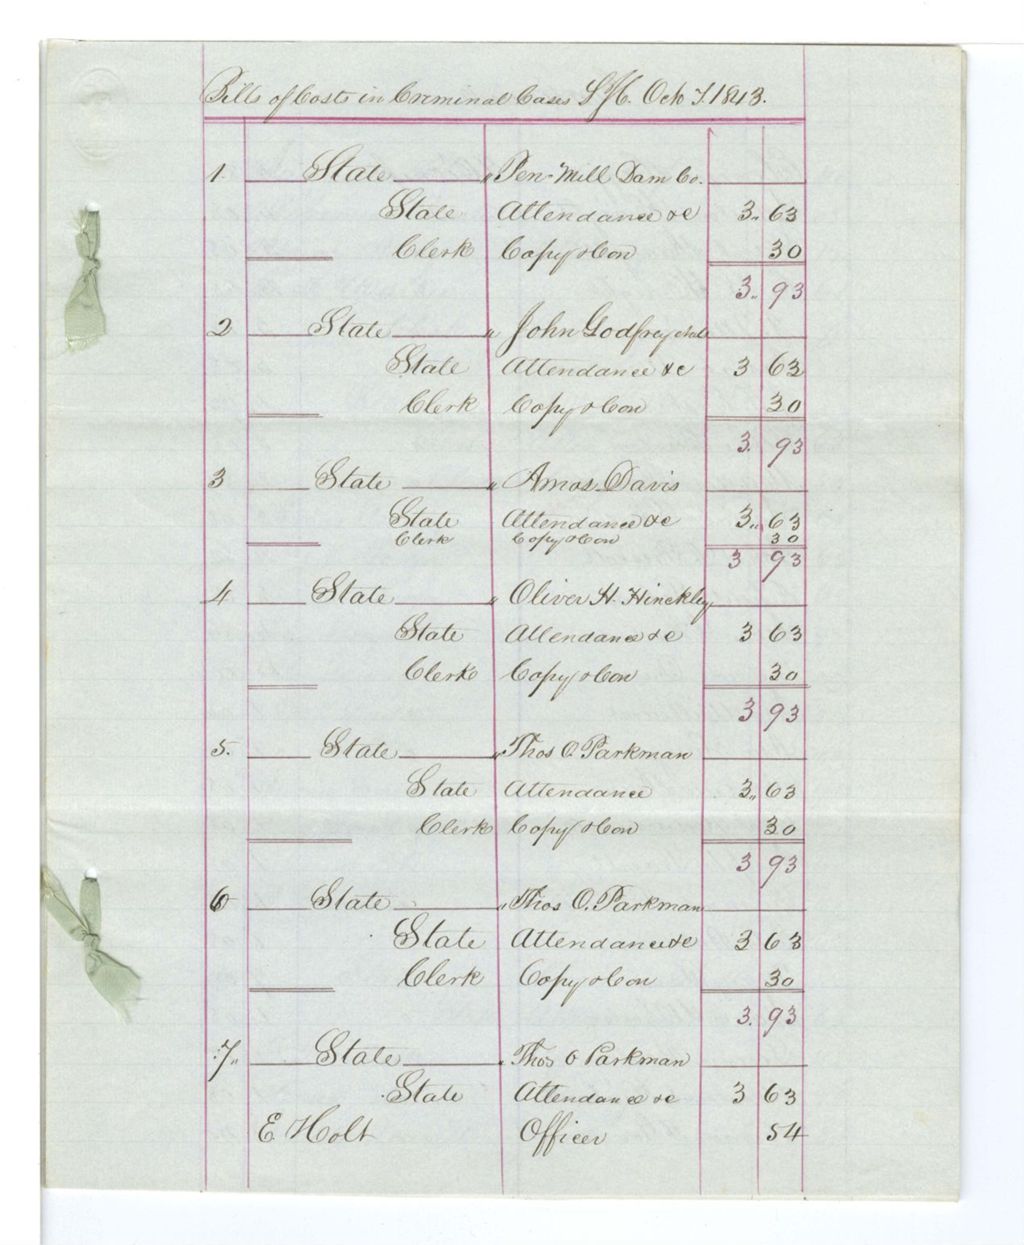 Bills of Costs in Criminal Cases Oct T. 1843.
1. State " Pen. Mill Dam Co.
State Attendance &c 3.. 63
Clerk Copy & Con 30
3.. 93
2 State " John Godfrey
State Attendance &c 3 63
Clerk Copy & Con 30
3. 93
3 State " Amos. Davis
State Attendance &c 3.. 63
Clerk Copy & Con 30
3 93
4 State " Oliver H. Hinckley
State Attendance &c 3 63
Clerk Copy & Con 30
3 93
5. State " Thos O. Parkman
State Attendance 3.. 63
Clerk Copy & Con 30
3 93
6 State " Thos O. Parkman
State Attendance &c 3 63
Clerk Copy & Con 30
3. 93
7.. State " Thos O Parkman
State Attendance &c 3 63
E Holt Officer 54